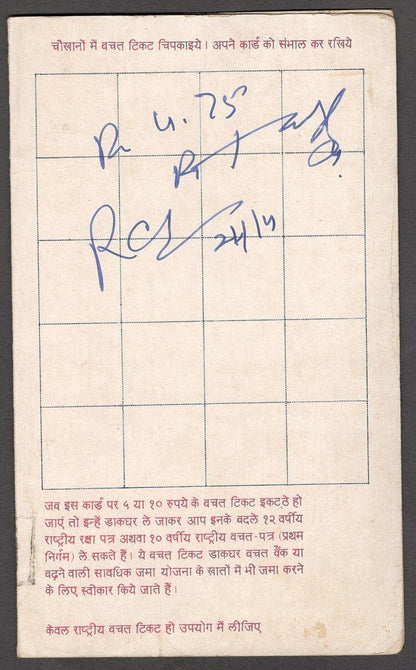 चौखानों में बचत टिकट चिपकाइये। अपने कार्ड को संभाल कर रखिये
जब इस कार्ड पर ५ या १० रुपये के बचत टिकट इकटठे हो
जाएं तो इन्हें डाकघर ले जाकर आप इनके बदले १२ वर्षीय
राष्ट्रीय रक्षा पत्र अथवा १० वर्षीय राष्ट्रीय बचत-पत्र (प्रथम
निर्गम) ले सकते हैं। ये बचत टिकट डाकघर बचत बैंक या
बढ़ने वाली सावधिक जमा योजना के खातों में भी जमा करने
के लिए स्वीकार किये जाते हैं।
केवल राष्ट्रीय बचत टिकट ही उपयोग में लीजिए